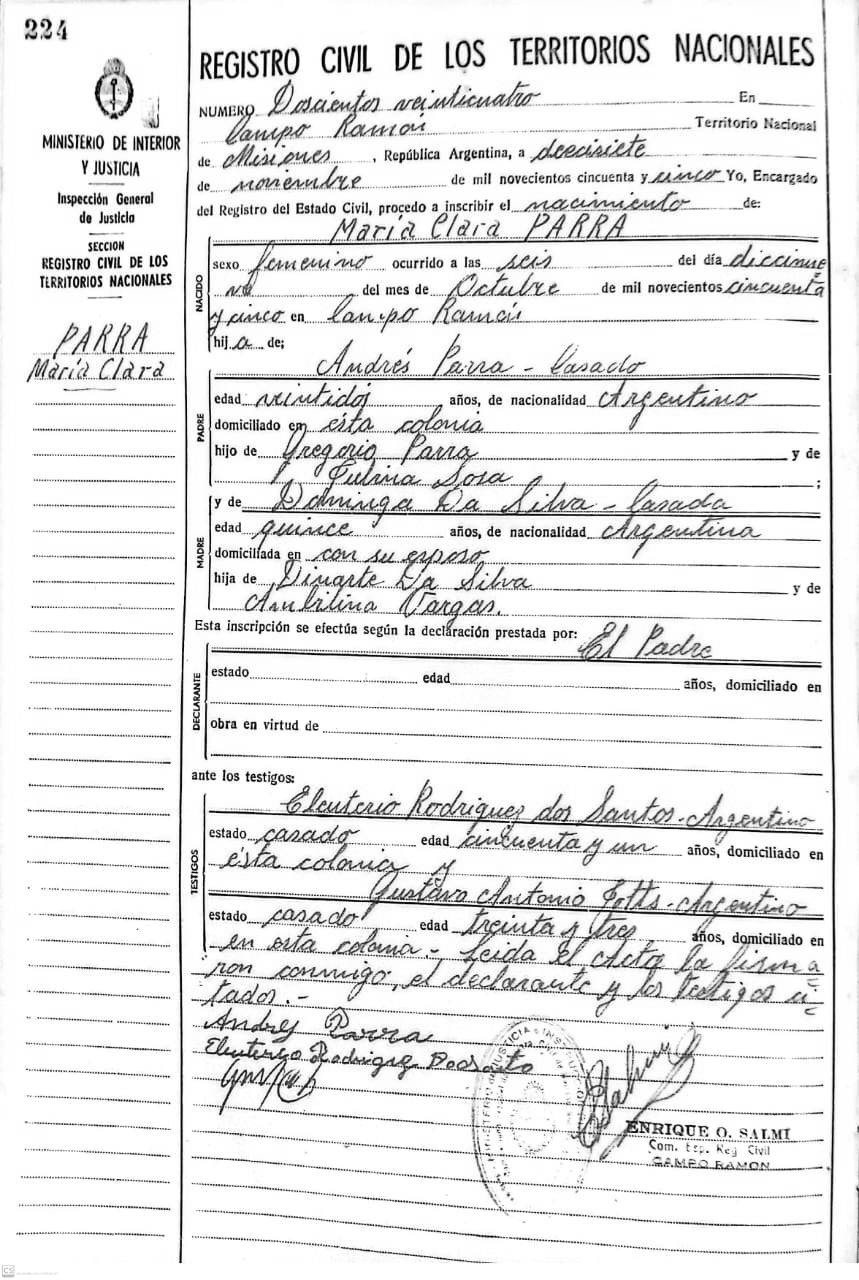 224
MINISTERIO DE INTERIOR
Y JUSTICIA
Inspección General
de Justicia
SECCION
REGISTRO CIVIL DE LOS
TERRITORIOS NACIONALES
PARRA
María Clara
REGISTRO CIVIL DE LOS TERRITORIOS NACIONALES
NUMERO Doscientos veinticuatro En
Campo Ramón Territorio Nacional
de Misiones, República Argentina, a diecisiete
de noviembre de mil novecientos cincuenta y cinco Yo, Encargado
del Registro del Estado Civil, procedo a inscribir el nacimiento de:
María Clara PARRA
NACIDO
sexo femenino ocurrido a las seis del día diecinue
ve del mes de Octubre de mil novecientos cincuenta
y cinco en Campo Ramón
hija de;
PADRE
Andrés Parra - Casado
edad veintidós años, de nacionalidad Argentino
domiciliado en ésta colonia
hijo de Gregorio Parra y de
Sosa ;
MADRE
y de Dominga Da Silva - Casada
edad quince años, de nacionalidad Argentina
domiciliada en con su esposo
hija de Dinarte Da Silva y de
Vargas.
Esta inscripción se efectúa según la declaración prestada por: El Padre
DECLARANTE
estado edad años, domiciliado en
obra en virtud de
ante los testigos:
TESTIGOS
Eleuterio Rodriguez dos Santos - Argentino
estado casado edad cincuenta y un años, domiciliado en
ésta colonia y
Gustavo Antonio - Argentino
estado casado edad treinta y tres años, domiciliado en
en esta colonia.- Leida el Acta la firma
ron conmigo, el declarante y los testigos ci-
tados.-
Andres Parra
Eleuterio
ENRIQUE O. SALMI
Com. Esp. Reg Civil
CAMPO RAMON
CS